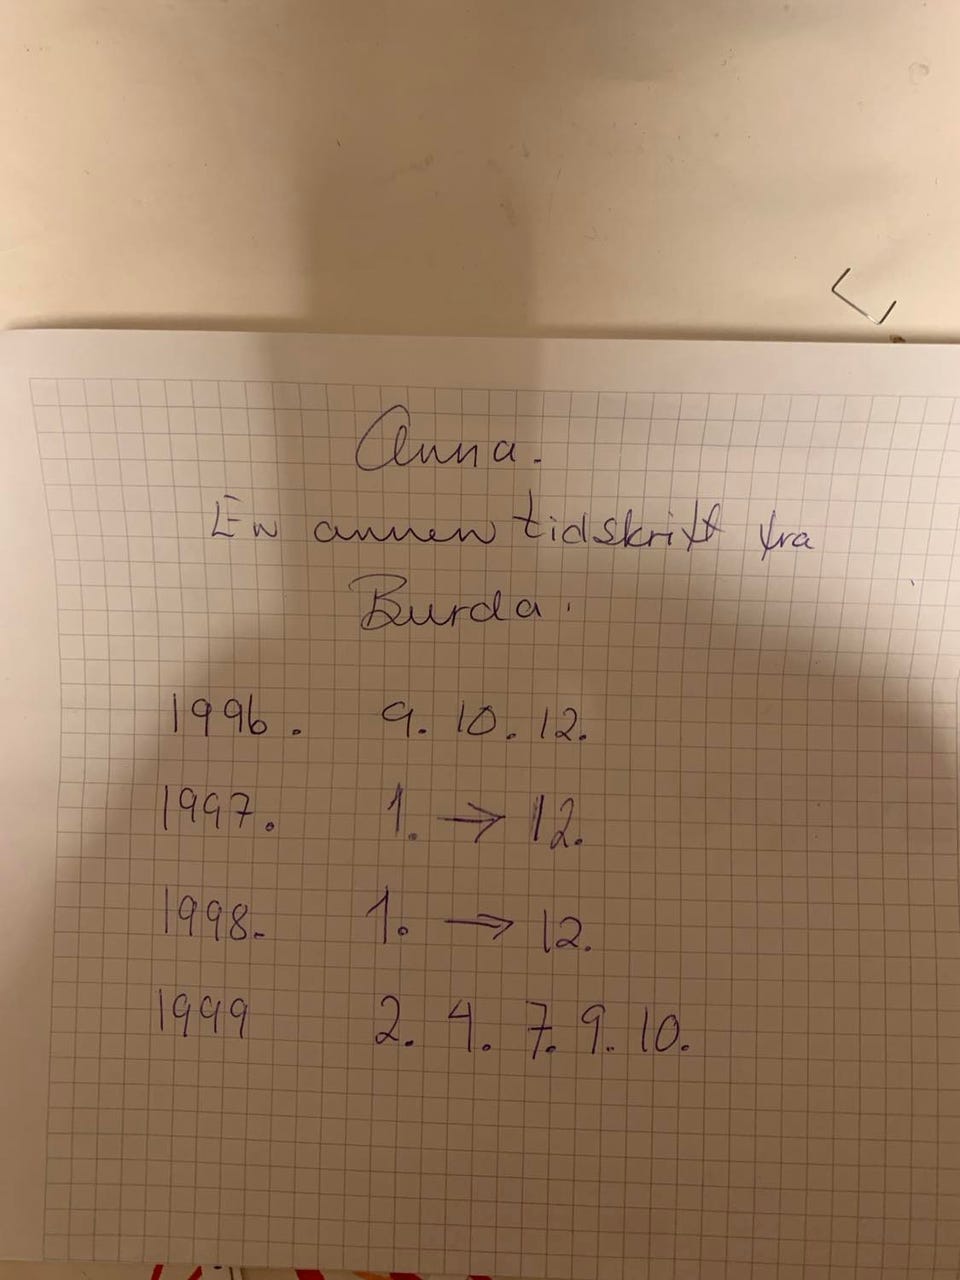 Anna.
En annen tidskrift fra
Burda.
1996. 9. 10. 12.
1997. 1. → 12.
1998. 1. → 12.
1999 2. 4. 7. 9. 10.